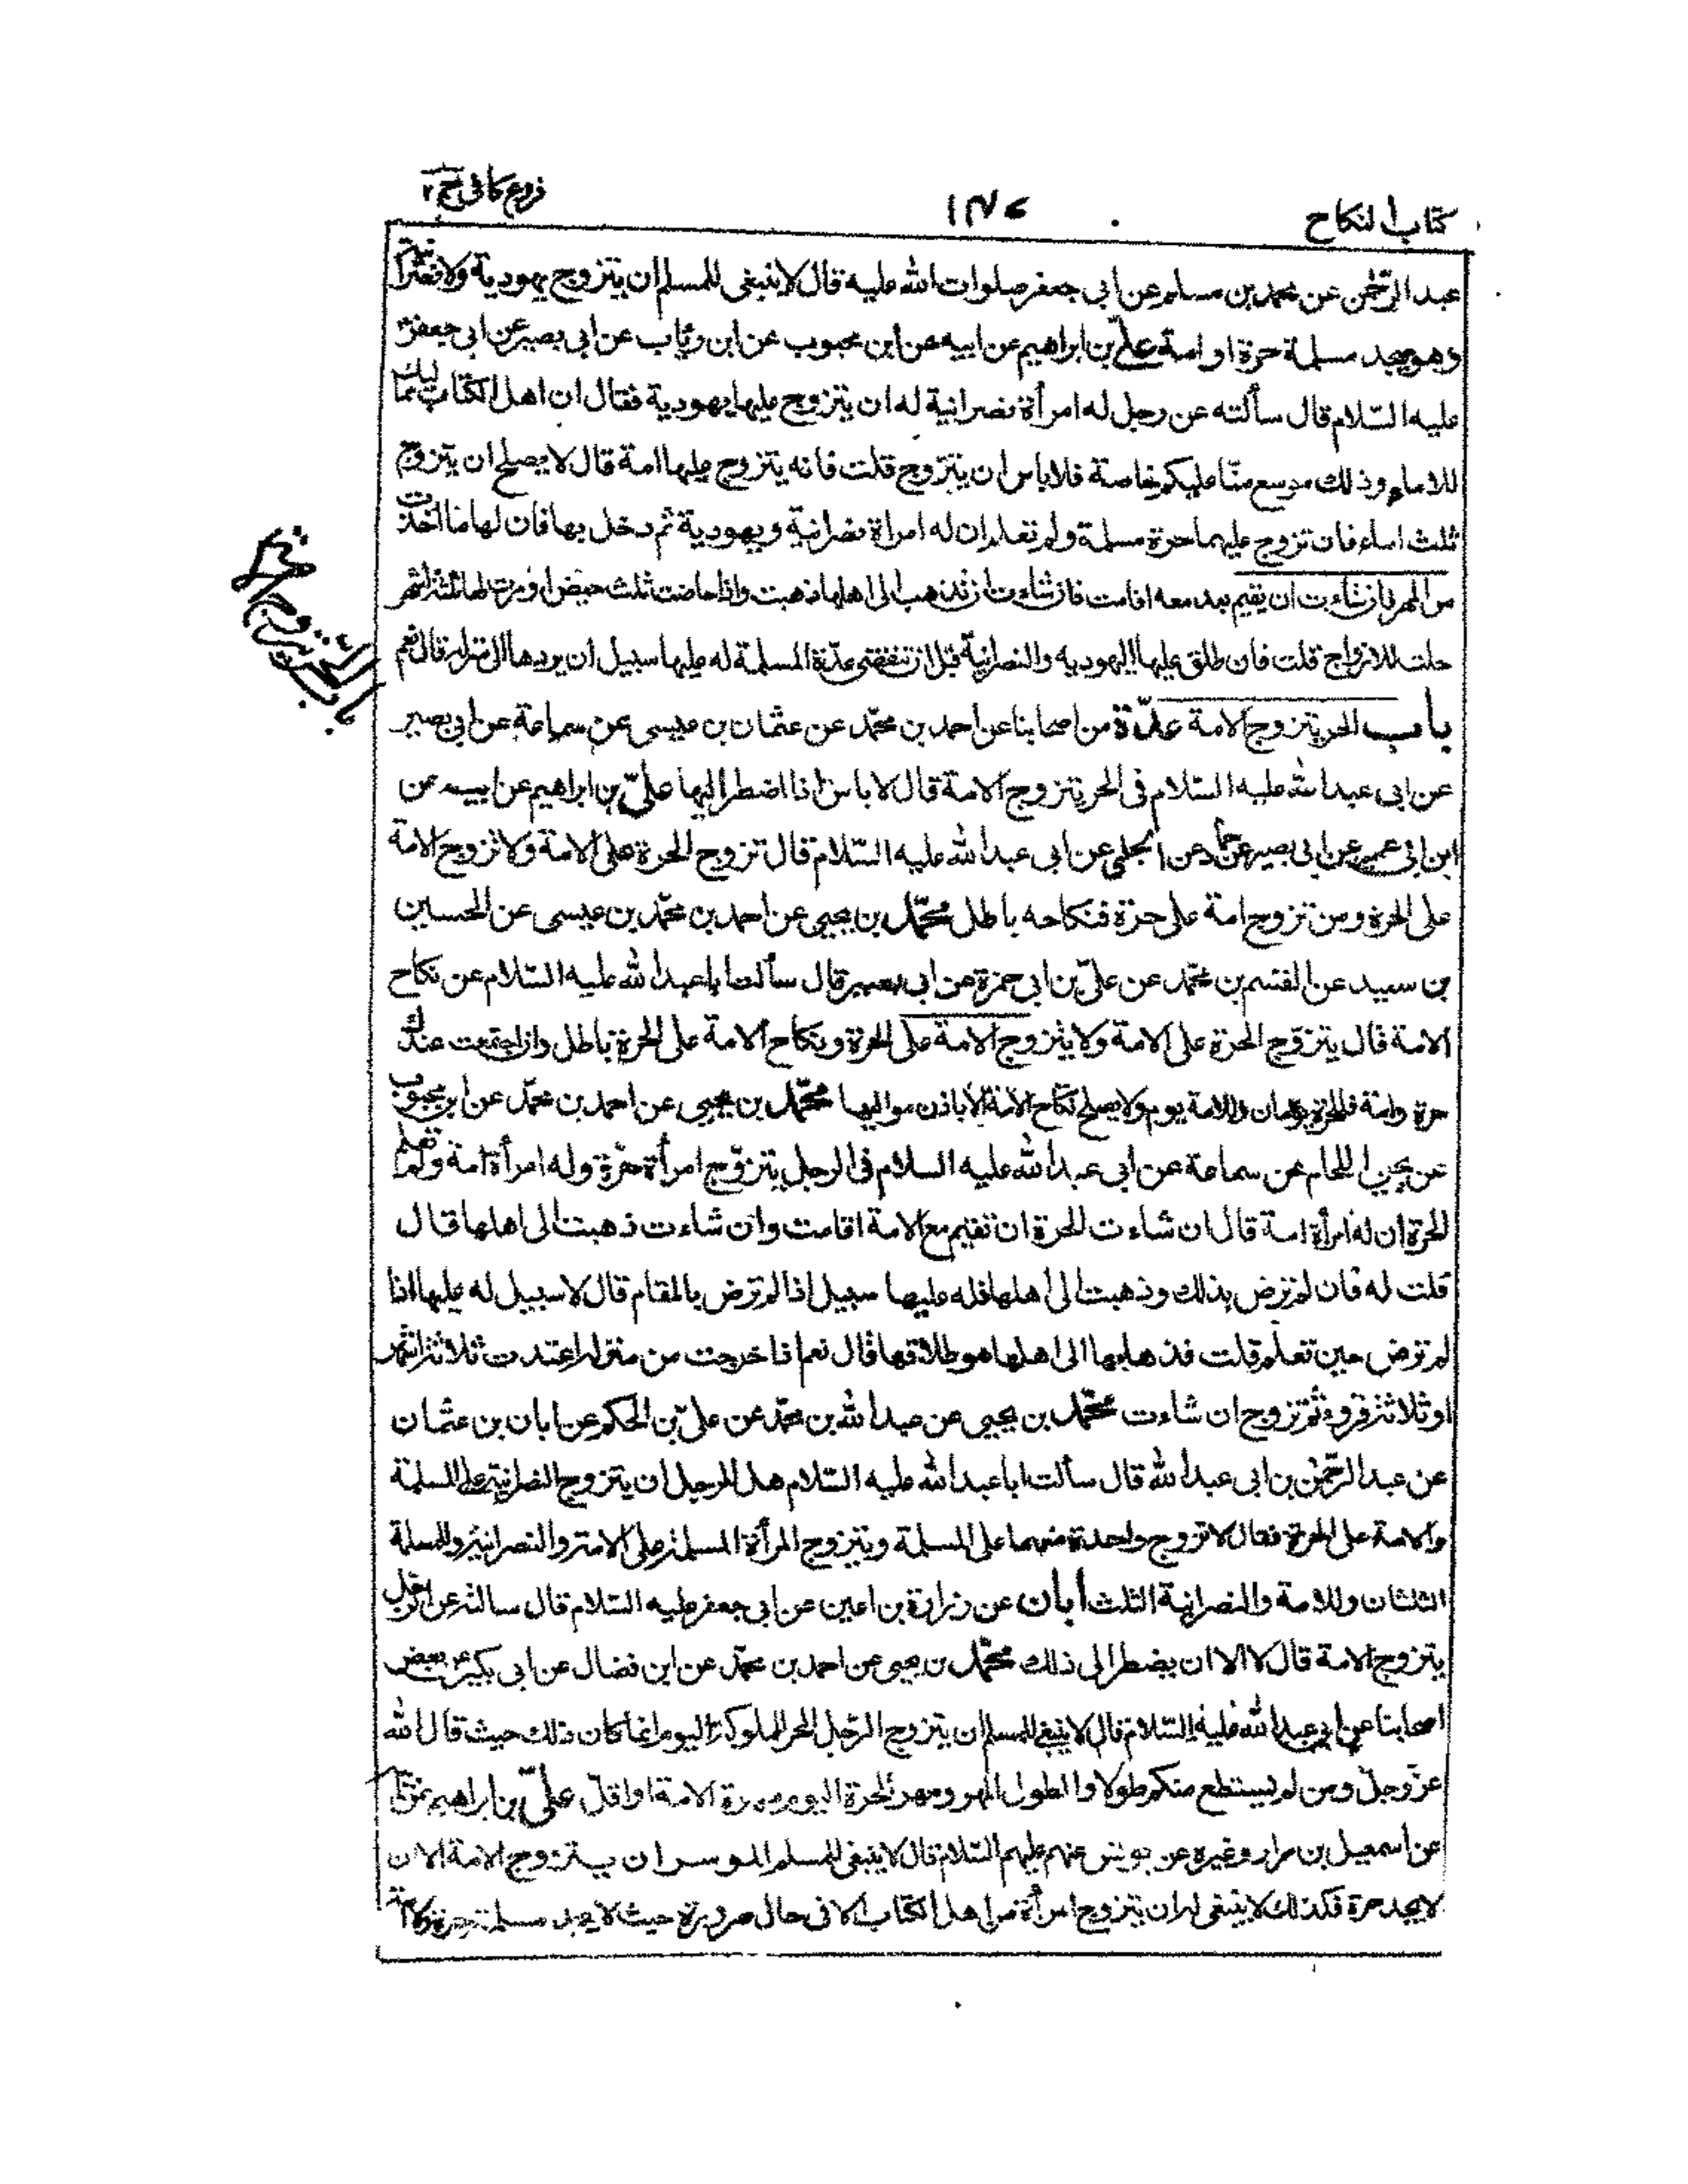 كتاب النكاح
فروع كافى ج ٢
عبد الرحمٰن عن محمد بن مسلم عن ابى جعفر صلوات الله عليه قال لا ينبغى للمسلم ان يتزوج يهودية ولا نصرانية
وهو يجد مسلمة حرة او امة علىّ بن ابراهيم عن ابيه عن ابن محبوب عن ابن رئاب عن ابى بصير عن ابى جعفر
عليه السّلام قال سألته عن رجل له امرأة نصرانية له ان يتزوج عليها يهودية فقال ان اهل الكتاب مماليك
للامام وذلك موسع منّا عليكم خاصة فلا باس ان يتزوج قلت فانه يتزوج عليها امة قال لا يصلح ان يتزوج
ثلث اماء فان تزوج عليهما حرة مسلمة ولم تعلم ان له امراة نصرانية ويهودية ثم دخل بها فان لها ما اخذت
من المهر فان شاءت ان يقيم بعد معه اقامت وان شاءت ان تذهب الى اهلها ذهبت واذا حاضت ثلث حيض او مرت لها ثلثة اشهر
حلت للازواج قلت فان طلق عليها اليهودية والنصرانية قبل ان تنقضى عدّة المسلمة له عليها سبيل ان يردها الى منزله قال نعم
باب الحر يتزوج الامة عدّة من اصحابنا عن احمد بن محمّد عن عثمان بن عيسى عن سماعة عن ابى بصير
عن ابى عبد الله عليه السّلام فى الحر يتزوج الامة قال لا باس اذا اضطر اليها علىّ بن ابراهيم عن ابيه عن
ابن ابى عمير عن ابى بصير عن حماد عن الحلبى عن ابى عبد الله عليه السّلام قال تزوج الحرة على الامة ولا تزوج الامة
على الحرة ومن تزوج امة على حرة فنكاحه باطل محمّد بن يحيى عن احمد بن محمّد بن عيسى عن الحسين
بن سعيد عن القسم بن محمّد عن علىّ بن ابى حمزة عن ابى بصير قال سألت ابا عبد الله عليه السّلام عن نكاح
الامة قال يتزوّج الحرة على الامة ولا يتزوج الامة على الحرة ونكاح الامة على الحرة باطل وان اجتمعت عندك
حرة وامة فللحرة يومان وللامة يوم ولا يصلح نكاح الامة الا باذن مواليها محمّد بن يحيى عن احمد بن محمّد عن ابن محبوب
عن يحيى اللحام عن سماعة عن ابى عبد الله عليه السلام فى الرجل يتزوّج امرأة حرّة وله امرأة امة ولم تعلم
الحرة ان له امرأة امة قال ان شاءت الحرة ان تقيم مع الامة اقامت وان شاءت ذهبت الى اهلها قال
قلت له فان لم ترض بذلك وذهبت الى اهلها فله عليها سبيل اذا لم ترض بالمقام قال لا سبيل له عليها اذا
لم ترض حين تعلم قلت فذهابها الى اهلها هو طلاقها قال نعم اذا خرجت من منزله اعتدت ثلاثة اشهر
او ثلاثة قروء ثم تزوج ان شاءت محمّد بن يحيى عن عبد الله بن محمّد عن علىّ بن الحكم عن ابان بن عثمان
عن عبد الرحمٰن بن ابى عبد الله قال سألت ابا عبد الله عليه السّلام هل للرجل ان يتزوج النصرانية على المسلمة
والامة على الحرة فقال لا تزوج واحدة منهما على المسلمة ويتزوج المرأة المسلمة على الامة والنصرانية وللمسلمة
الثلثان وللامة والنصرانية الثلث أبان عن زرارة بن اعين عن ابى جعفر عليه السّلام قال سالته عن الرجل
يتزوج الامة قال لا الا ان يضطر الى ذلك محمّد بن يحيى عن احمد بن محمّد عن ابن فضال عن ابى بكير عن بعض
اصحابنا عن ابى عبد الله عليه السّلام قال لا ينبغى للمسلم ان يتزوج الرّجل الحر المملوكة اليوم انما كان ذلك حيث قال الله
عزّ وجلّ ومن لم يستطع منكم طولا والطول المهر ومهر الحرة اليوم مهر الامة او اقلّ علىّ بن ابراهيم عن ابيه
عن اسمعيل بن مرار وغيره عن يونس عنهم عليهم السّلام قال لا ينبغى للمسلم الموسر ان يتزوج الامة الا ان
لا يجد حرة فكذلك لا ينبغى له ان يتزوج امرأة من اهل الكتاب الا فى حال ضرورة حيث لا يجد مسلمة حرة ولا امة